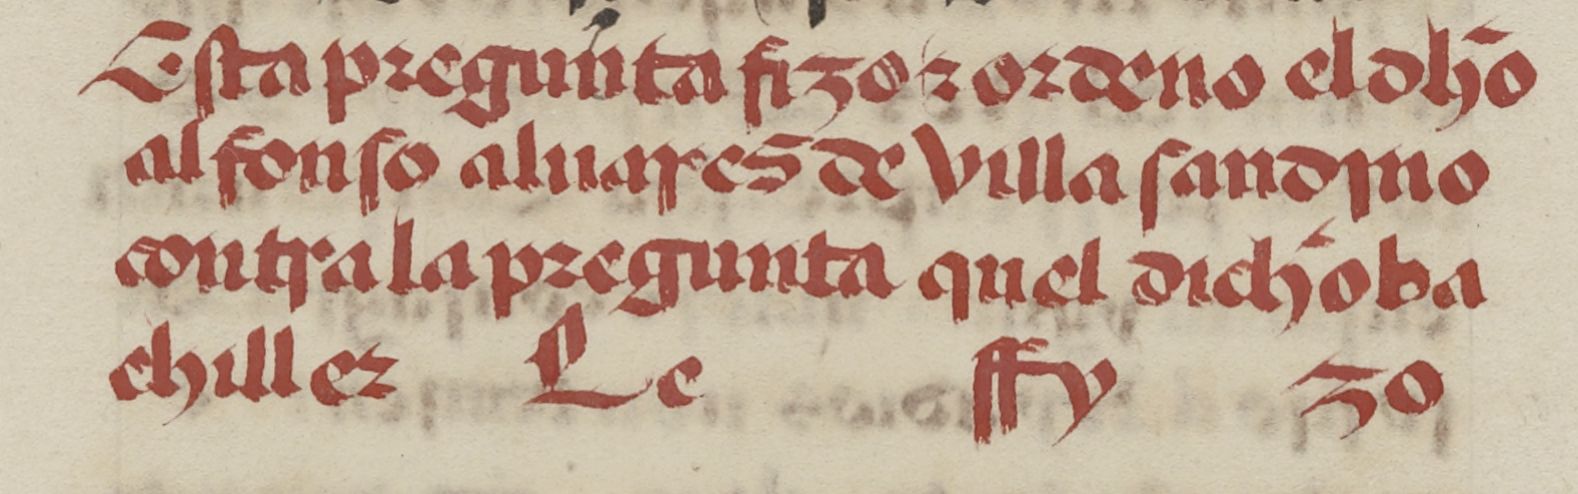 Esta pregunta fizo ⁊ ordeno el dho̅
alfonso aluares de villa sandino
contra la pregunta quel dicho̅ ba
chiller Le ffy zo